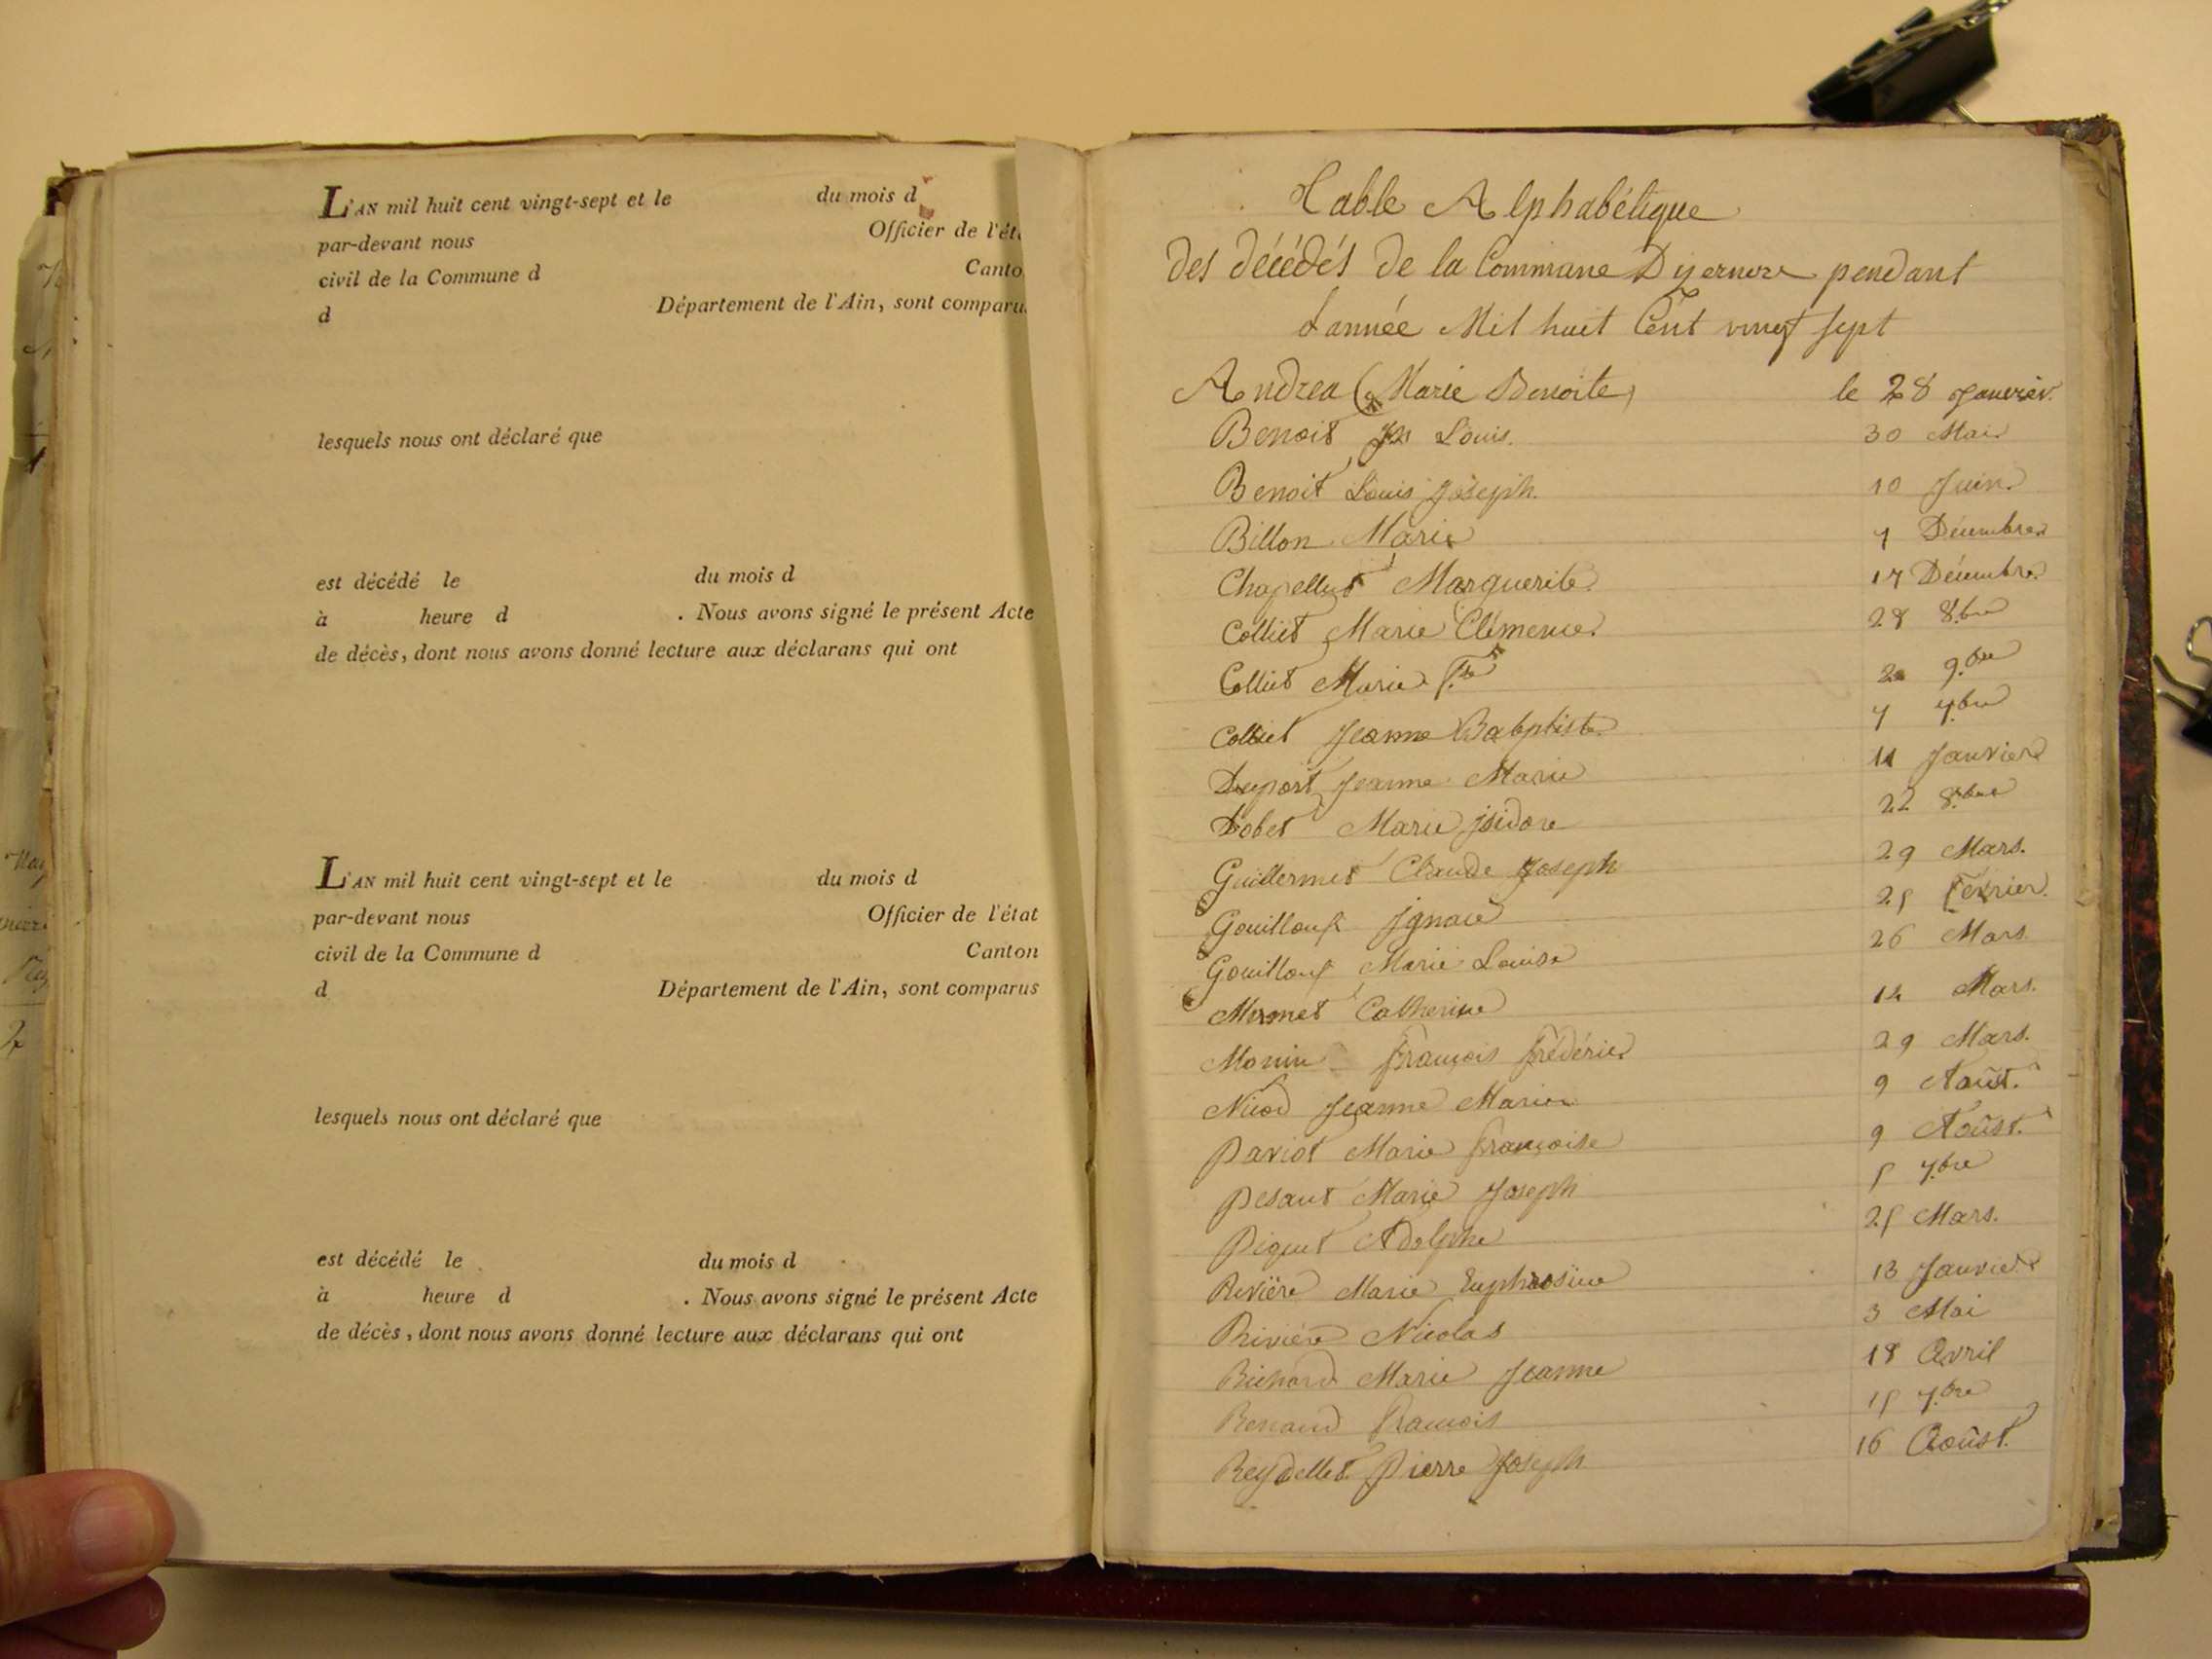 L'AN mil huit cent vingt-sept et le du mois d
par-devant nous Officier de l'ét
civil de la Commune d Canto
d Département de l'Ain, sont comparu
lesquels nous ont déclaré que
est décédé le du mois d
à heure d . Nous avons signé le présent Acte
de décès, dont nous avons donné lecture aux déclarans qui ont
L'AN mil huit cent vingt-sept et le du mois d
par-devant nous Officier de l'état
civil de la Commune d Canton
d Département de l'Ain, sont comparus
lesquels nous ont déclaré que
est décédé le du mois d
à heure d . Nous avons signé le présent Acte
de décès, dont nous avons donné lecture aux déclarans qui ont
Table Alphabétique
des décédés de la Commune Dyernore pendant
L'année Mil huit Cent vingt sept
Andrea (Marie Benoite) le 28 Janvier.
Benoit Jh Louis. 30 Mai
Benoit Louis Joseph. 10 Juin
Billon Marie 7 Décembre
Chapellut Marguerite 17 Décembre
Colliet Marie Clémence. 28 8.bre
Colliet Marie 2 9.bre
Colliet Jeanne Babptiste 7 7.bre
Duport Jeanne Marie 11 Janvier
Dobet Marie isidore 22 8.bre
Guillermet Claude Joseph 29 Mars.
Gouilloux Ignace 25 Février.
Gouilloux Marie Louise 26 Mars
Mermet Catherine 12 Mars.
Monin François Frédéric 29 Mars.
Nicod Jeanne Marie 9 Août.
Pariot Marie Françoise 9 Aoûst.
Pesant Marie Joseph 5 7.bre
Piquet Adolphe 25 Mars.
Rivière Marie Euphrosine 13 Janvier
Rivière Nicolas 3 Mai
Richard Marie Jeanne 18 Avril
Renaud François 15 7.bre
Reydellet Pierre Joseph 16 Aoûst.